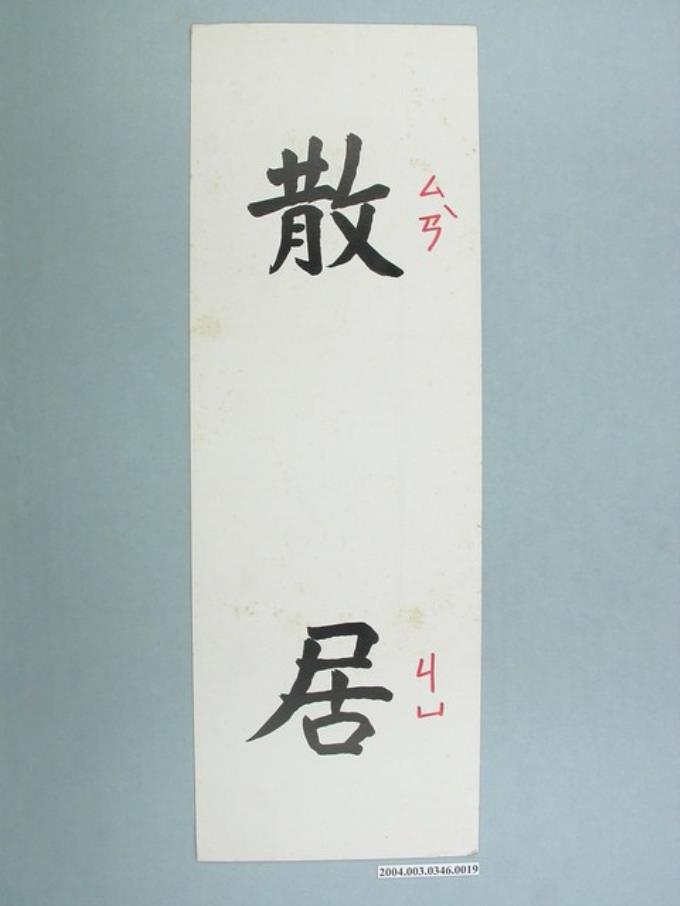 散 ㄙㄢˋ
居 ㄐㄩ
2004.003.0346.0019